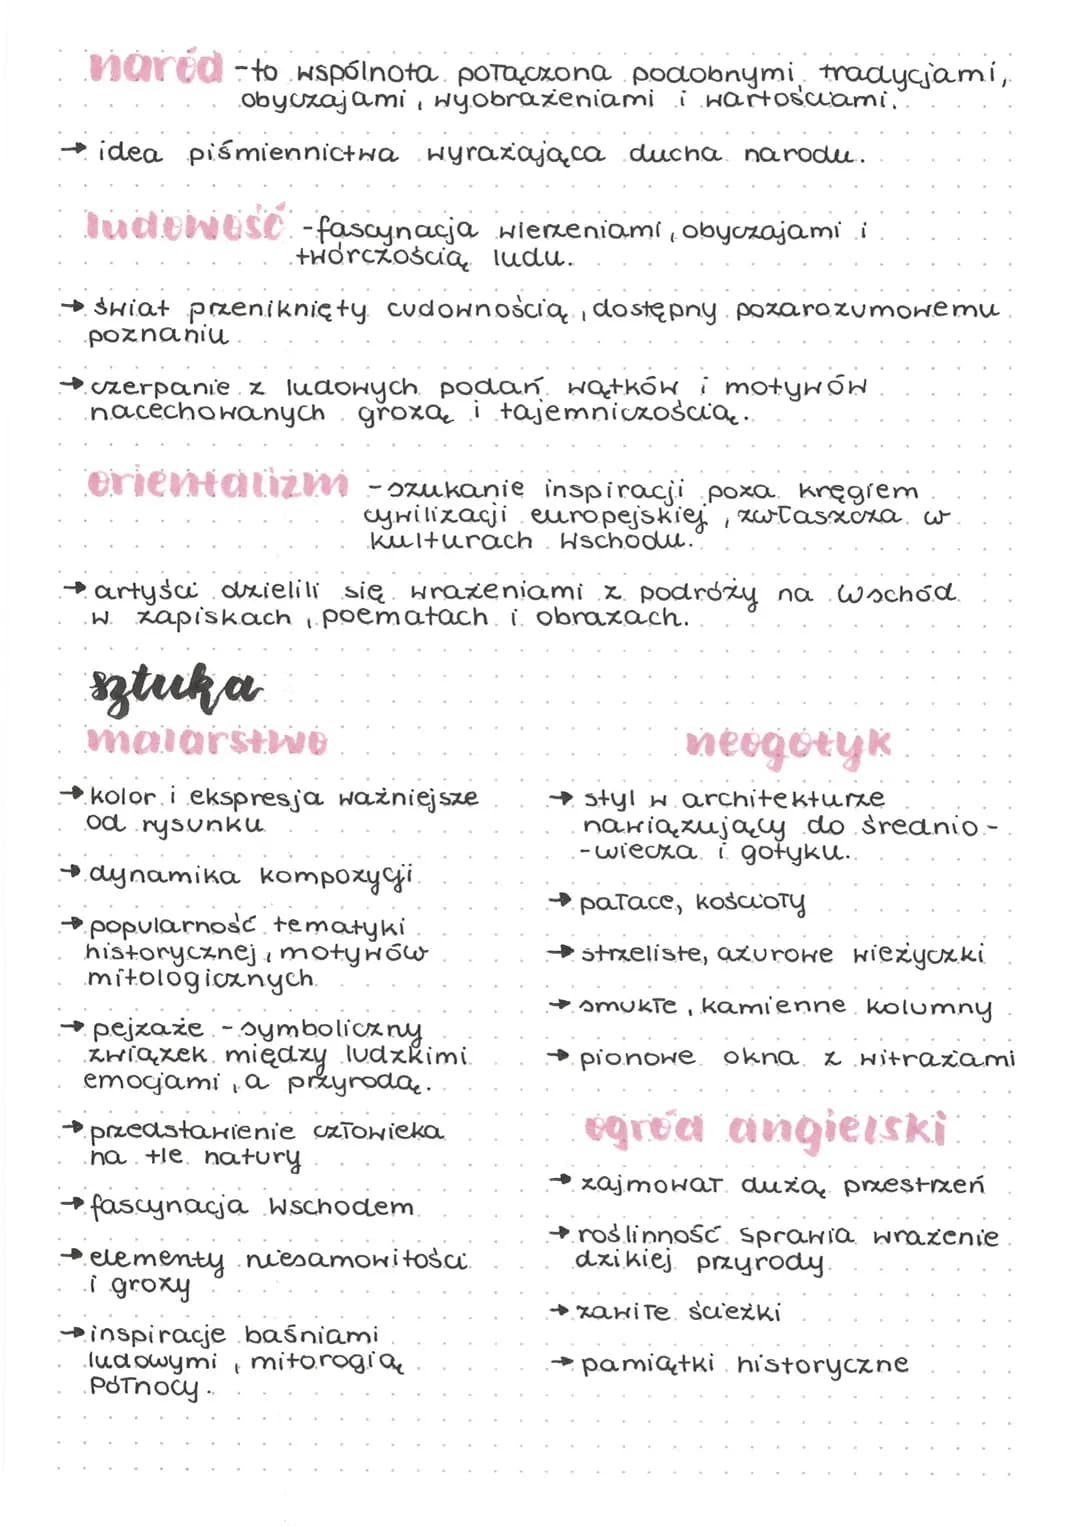 naród -to wspólnota połączona podobnymi tradycjami,
obyczajami, wyobrażeniami i wartościami.
→ idea piśmiennictwa wyrażająca ducha narodu.
ludowość -fascynacja wierzeniami, obyczajami i
twórczością ludu.
→ świat przeniknięty cudownością, dostępny pozarozumowemu
poznaniu
→ czerpanie z ludowych podań wątków i motywów
nacechowanych grozą i tajemniczością.
orientalizm -szukanie inspiracji poza kręgiem
cywilizacji europejskiej, zwłaszcza w
kulturach Wschodu.
→ artyści dzielili się wrażeniami z podróży na Wschód
w zapiskach, poematach i obrazach.
sztuka
malarstwo
→ kolor i ekspresja ważniejsze
od rysunku
→ dynamika kompozycji
→ popularność tematyki
historycznej, motywów
mitologicznych
→ pejzaże - symboliczny
związek między ludzkimi
emocjami, a przyrodą.
→ przedstawienie człowieka
na tle natury
→ fascynacja Wschodem
→ elementy niesamowitości
i grozy
→ inspiracje baśniami
ludowymi, mitologią
Północy.
neogotyk
→ styl w architekturze
nawiązujący do średnio-
-wiecza i gotyku.
→ pałace, kościoły
→ strzeliste, ażurowe wieżyczki
→ smukłe, kamienne kolumny
→ pionowe okna z witrażami
ogród angielski
→ zajmował dużą przestrzeń
→ roślinność sprawia wrażenie
dzikiej przyrody
→ zawiłe ścieżki
→ pamiątki historyczne